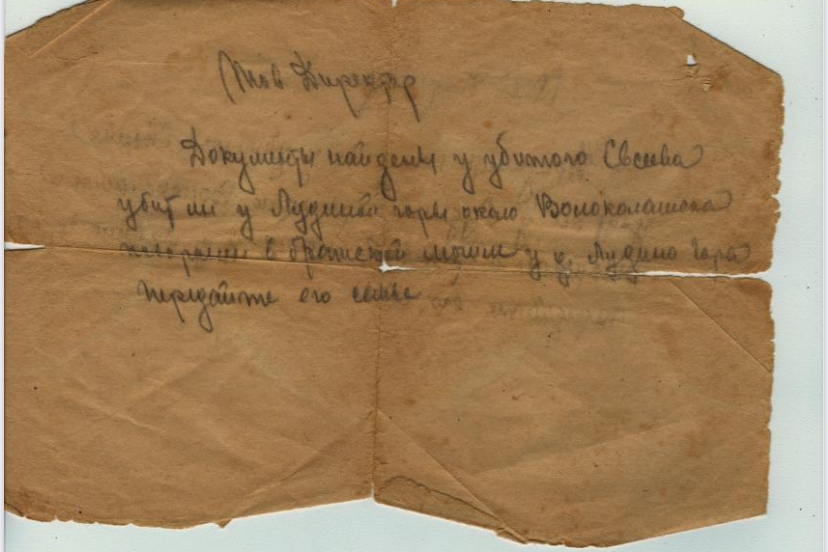 Тов Директор
Документы найдены у убитого Евсеева
убит он у Лудиной горы около Волоколамска
похоронен в братской могиле у д. Лудино Гора
передайте его семье